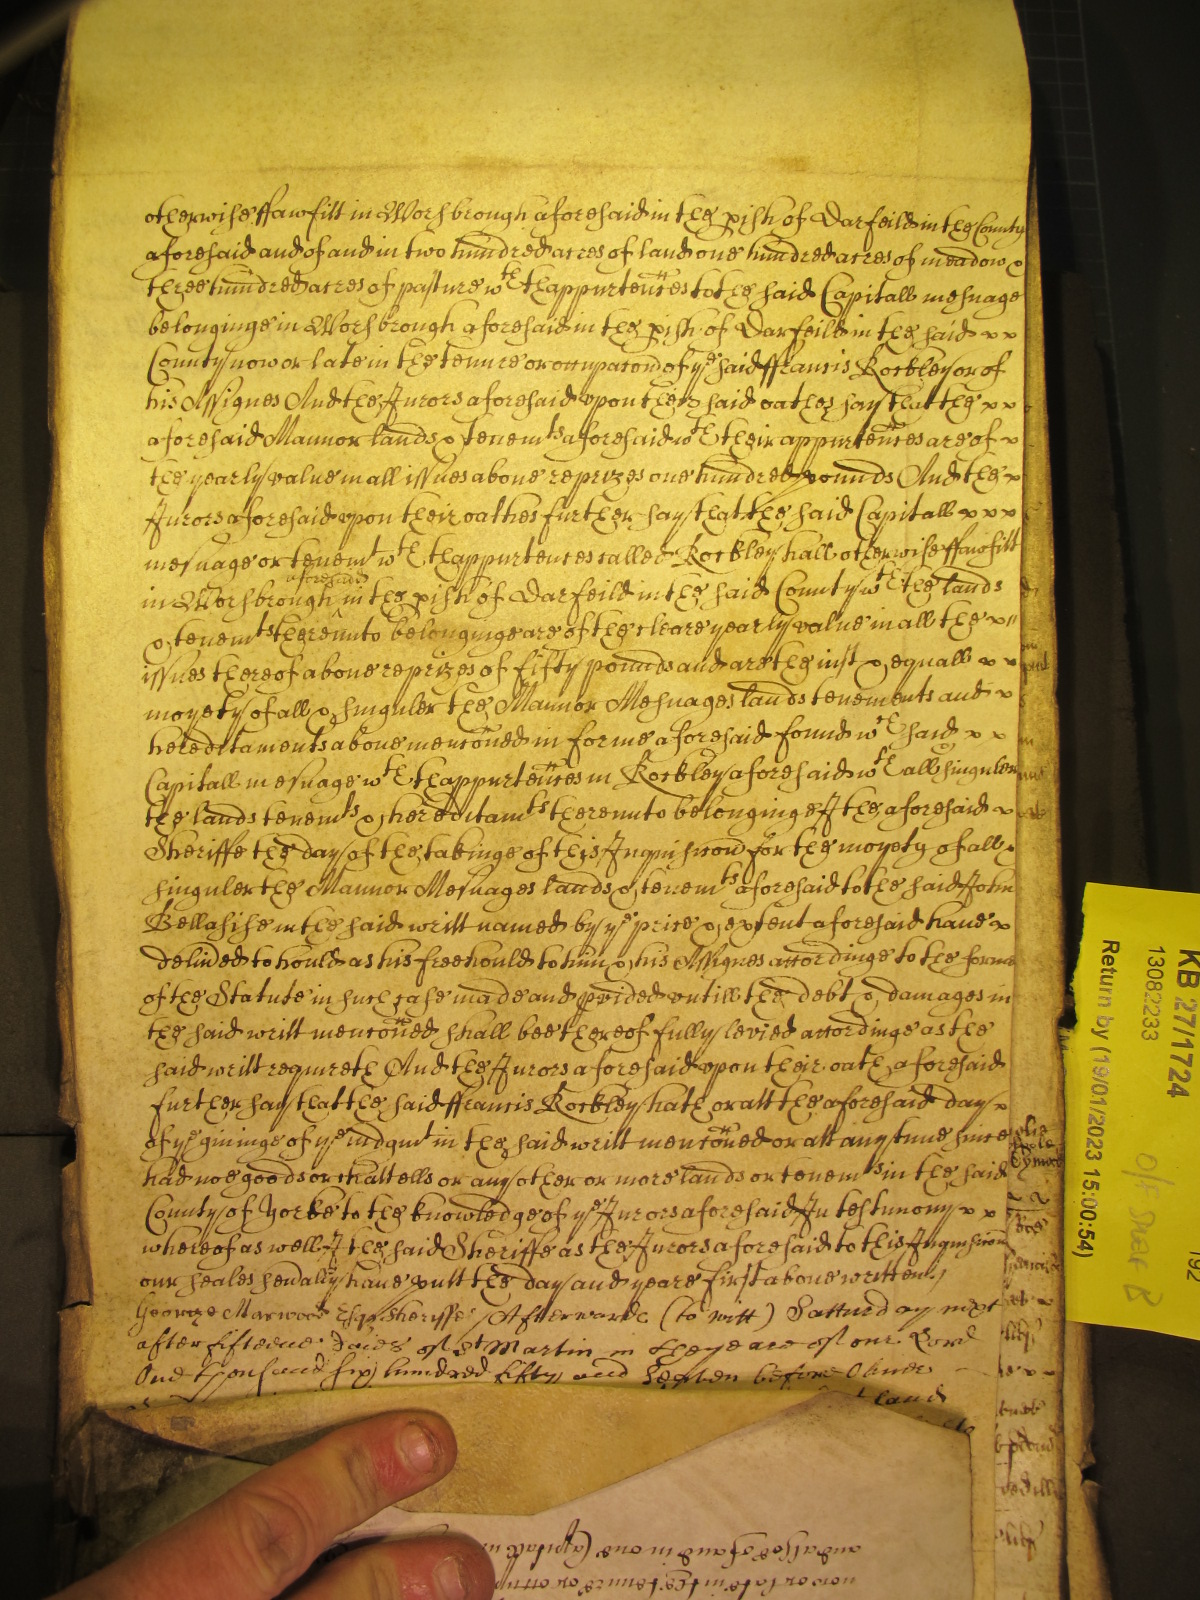 otherwise ffawfitt in Worsbrough aforesaid in the pish of Darfeild in the County
aforesaid and of and in two hundred acres of land one hundred acres of meadow &
three hundred acres of pasture wth thappurtences to the said Capitall mesuage
belonginge in Worsbrough aforesaid in the pish of Darfeild in the said x x
County now or late in the tenure or occupacon of ye said ffrancis Rockley or of
his Assignes And the Jurors aforesaid upon their said oathes say that the x x
aforesaid Mannor lands & tenemts aforesaid wth their appurtences are of x
the yearly value in all issues above reprizes one hundred pounds And the x
Jurors aforesaid upon their oathes further say that the said Capitall x x x
mesuage or tenemt wth thappurtences called Rockley hall otherwise ffawfitt
in Worsbrough aforesaid in the pish of Darfeild in the said County wth the lands
& tenemts thereunto belonginge are of the cleare yearly value in all the x
issues thereof above reprizes of fifty pounds and are the iust & equall x x
moyety of all & singuler the Mannor Mesuages lands tenements and x
hereditaments above menconed in forme aforesaid found wch said x x
Capitall mesuage wth thappurtences in Rockley aforesaid wth all & singuler
the lands tenemts & hereditamts thereunto belonginge I the aforesaid x
Sheriffe the day of the takinge of this Inquisicon for the moyety of all &
singuler the Mannor Mesuages lands & tenemts aforesaid to the said John
Bellasise in the said writt named by ye price & extent aforesaid have x
delived to hould as his freehould to him & his Assignes accordinge to the forme
of the Statute in such case made and pvided untill the debt & damages in
the said writt menconed shall bee thereof fully levied accordinge as the
said writt requireth And the Jurors aforesaid upon their oath aforesaid
further say that the said ffrancis Rockley hath or att the aforesaid day x
of ye givinge of ye iudgmt in the said writt menconed or att any time since
had noe goods or chattells or any other or more lands or tenemts in the said
County of Yorke to the knowledge of ye Jurors aforesaid In testimony x x
whereof as well I the said Sheriffe as the Jurors aforesaid to this Inquisicon
our seales sevally have putt the day and yeare first above written
George Marwood Esqr Sheriffe Afterwards (to witt) Satturday next
after fifteene Daies of St Martin in the yeare of our Lord
One thousand six hundred fifty and Seaven before Oliver
land
KB 27/1724
13082233
Return by (19/01/2023 15:00:54)
192
and alsoe of and in one Capitall m
now or late in the tenure or occu